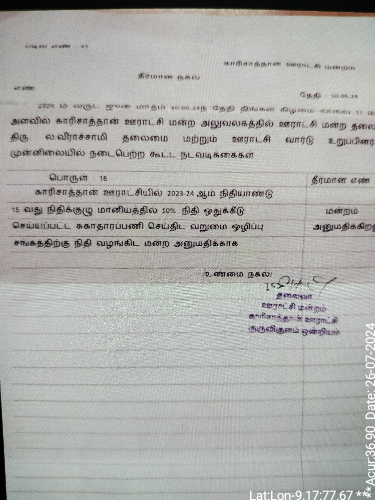 படிவ எண் : 27
காரிசாத்தான் ஊராட்சி மன்றம்
தீர்மான நகல்
எண் தேதி : 10.06.24
2024 ம் வருட ஜுன் மாதம் 10.06.24ந் தேதி திங்கள் கிழமை காலை 11
அளவில் காரிசாத்தான் ஊராட்சி மன்ற அலுவலகத்தில் ஊராட்சி மன்ற
திரு ல.வீராச்சாமி தலைமை மற்றும் ஊராட்சி வார்டு
முன்னிலையில் நடைபெற்ற கூட்ட நடவடிக்கைகள்
பொருள் 16 தீர்மான எண்
காரிசாத்தான் ஊராட்சியில் 2023-24 ஆம் நிதியாண்டு
15 வது நிதிக்குழு மானியத்தில் 50% நிதி ஒதுக்கீடு மன்றம
செய்யப்பட்ட சுகாதாரப்பணி செய்திட வறுமை ஒழிப்பு
சங்கத்திற்கு நிதி வழங்கிட மன்ற அனுமதிக்காக
உண்மை நகல்/
தலைவர்
ஊராட்சி மன்றம்
காரிசாத்தான் ஊராட்சி
குருவிகுளம் ஒன்றியம்
Lat:Lon-9.17:77.67 ***
Acur:36.90 Date: 26-07-2024